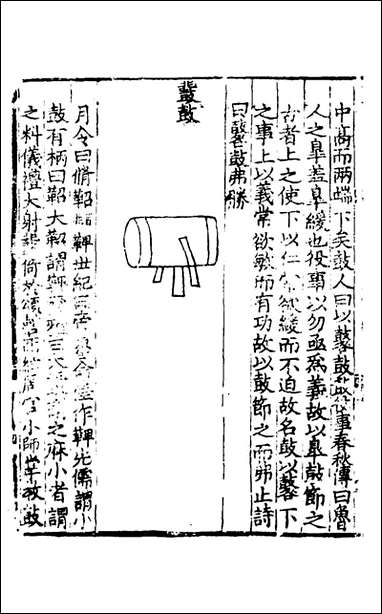 中高而兩端下矣鼓人曰以鼛鼓鼓役事春秋傳曰魯
人之皋蓋皋緩也役事以勿亟爲義故以皋鼓節之
古者上之使下以仁常欲緩而不迫故名鼓以鼛下
之事上以義常欲敏而有功故以鼓節之而弗止詩
曰鼛鼓弗勝
鼙鼓
月令曰脩鞀鞞世紀帝嚳命垂作鞞先儒謂小
鼓有柄曰鞀大鞀謂鞞之麻小者謂
之料儀禮大射鼗倚於頌磬西紘周官小師掌敎鼓